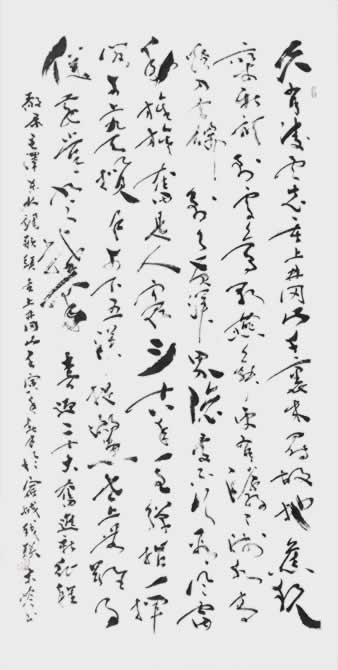 久有凌云志重上井冈山千里来寻故地旧貌
变新颜到处莺歌燕舞更有潺潺流水高
路入云端过了黄洋界险处不须看风雷
动旌旗奋是人寰三十八年过去弹指一挥
间可上九天揽月可下五洋捉鳖世上无难事
喜迎二十大奋进新征程
敬录毛泽东水调歌头重上井冈山壬寅年于容城